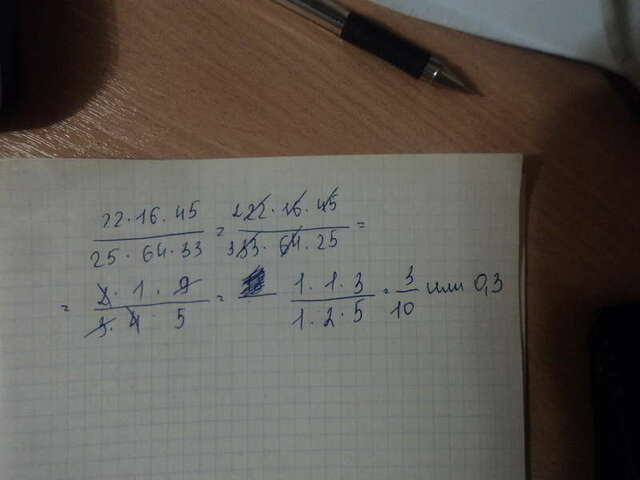 22·16·45 / 25·64·33 = 222·16·45 / 333·64·25 =
= 2·1·9 / 3·4·5 = 1·1·3 / 1·2·5 = 3/10 или 0,3